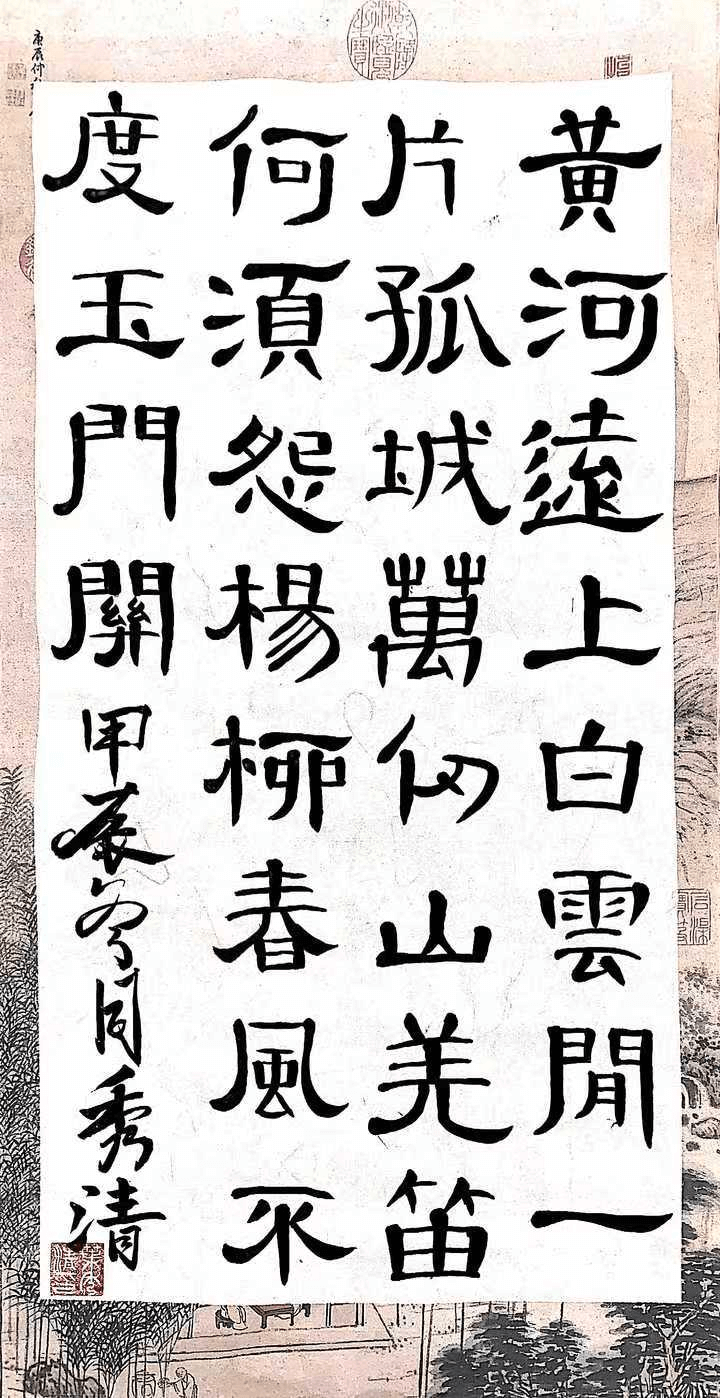 黃河遠上白雲閒一
片孤城萬仞山羌笛
何須怨楊柳春風不
度玉門關
甲辰冬周秀清
庚辰仲